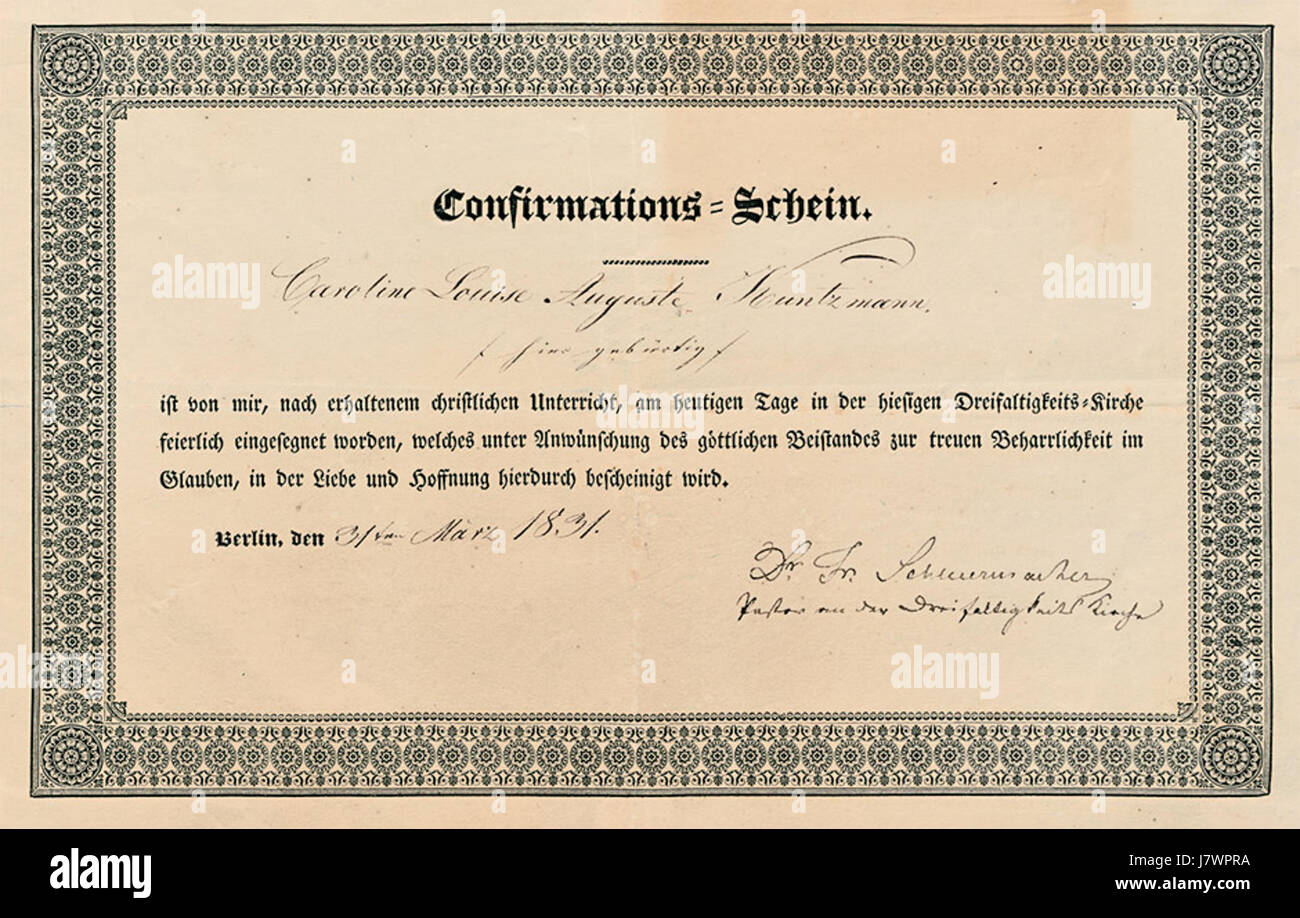 Confirmations=Schein.
Caroline Louise Auguste Kuntzmann.
hier gebürtig
ist von mir, nach erhaltenem christlichen Unterricht, am heutigen Tage in der hiesigen Dreifaltigkeits=Kirche
feierlich eingesegnet worden, welches unter Anwünschung des göttlichen Beistandes zur treuen Beharrlichkeit im
Glauben, in der Liebe und Hoffnung hierdurch bescheinigt wird.
Berlin, den 31ten März 1831.
Dr. Fr. Schleiermacher
Pastor an der Dreifaltigkeits Kirche
a alamy stock photo
alamy
J7WPRA
www.alamy.com